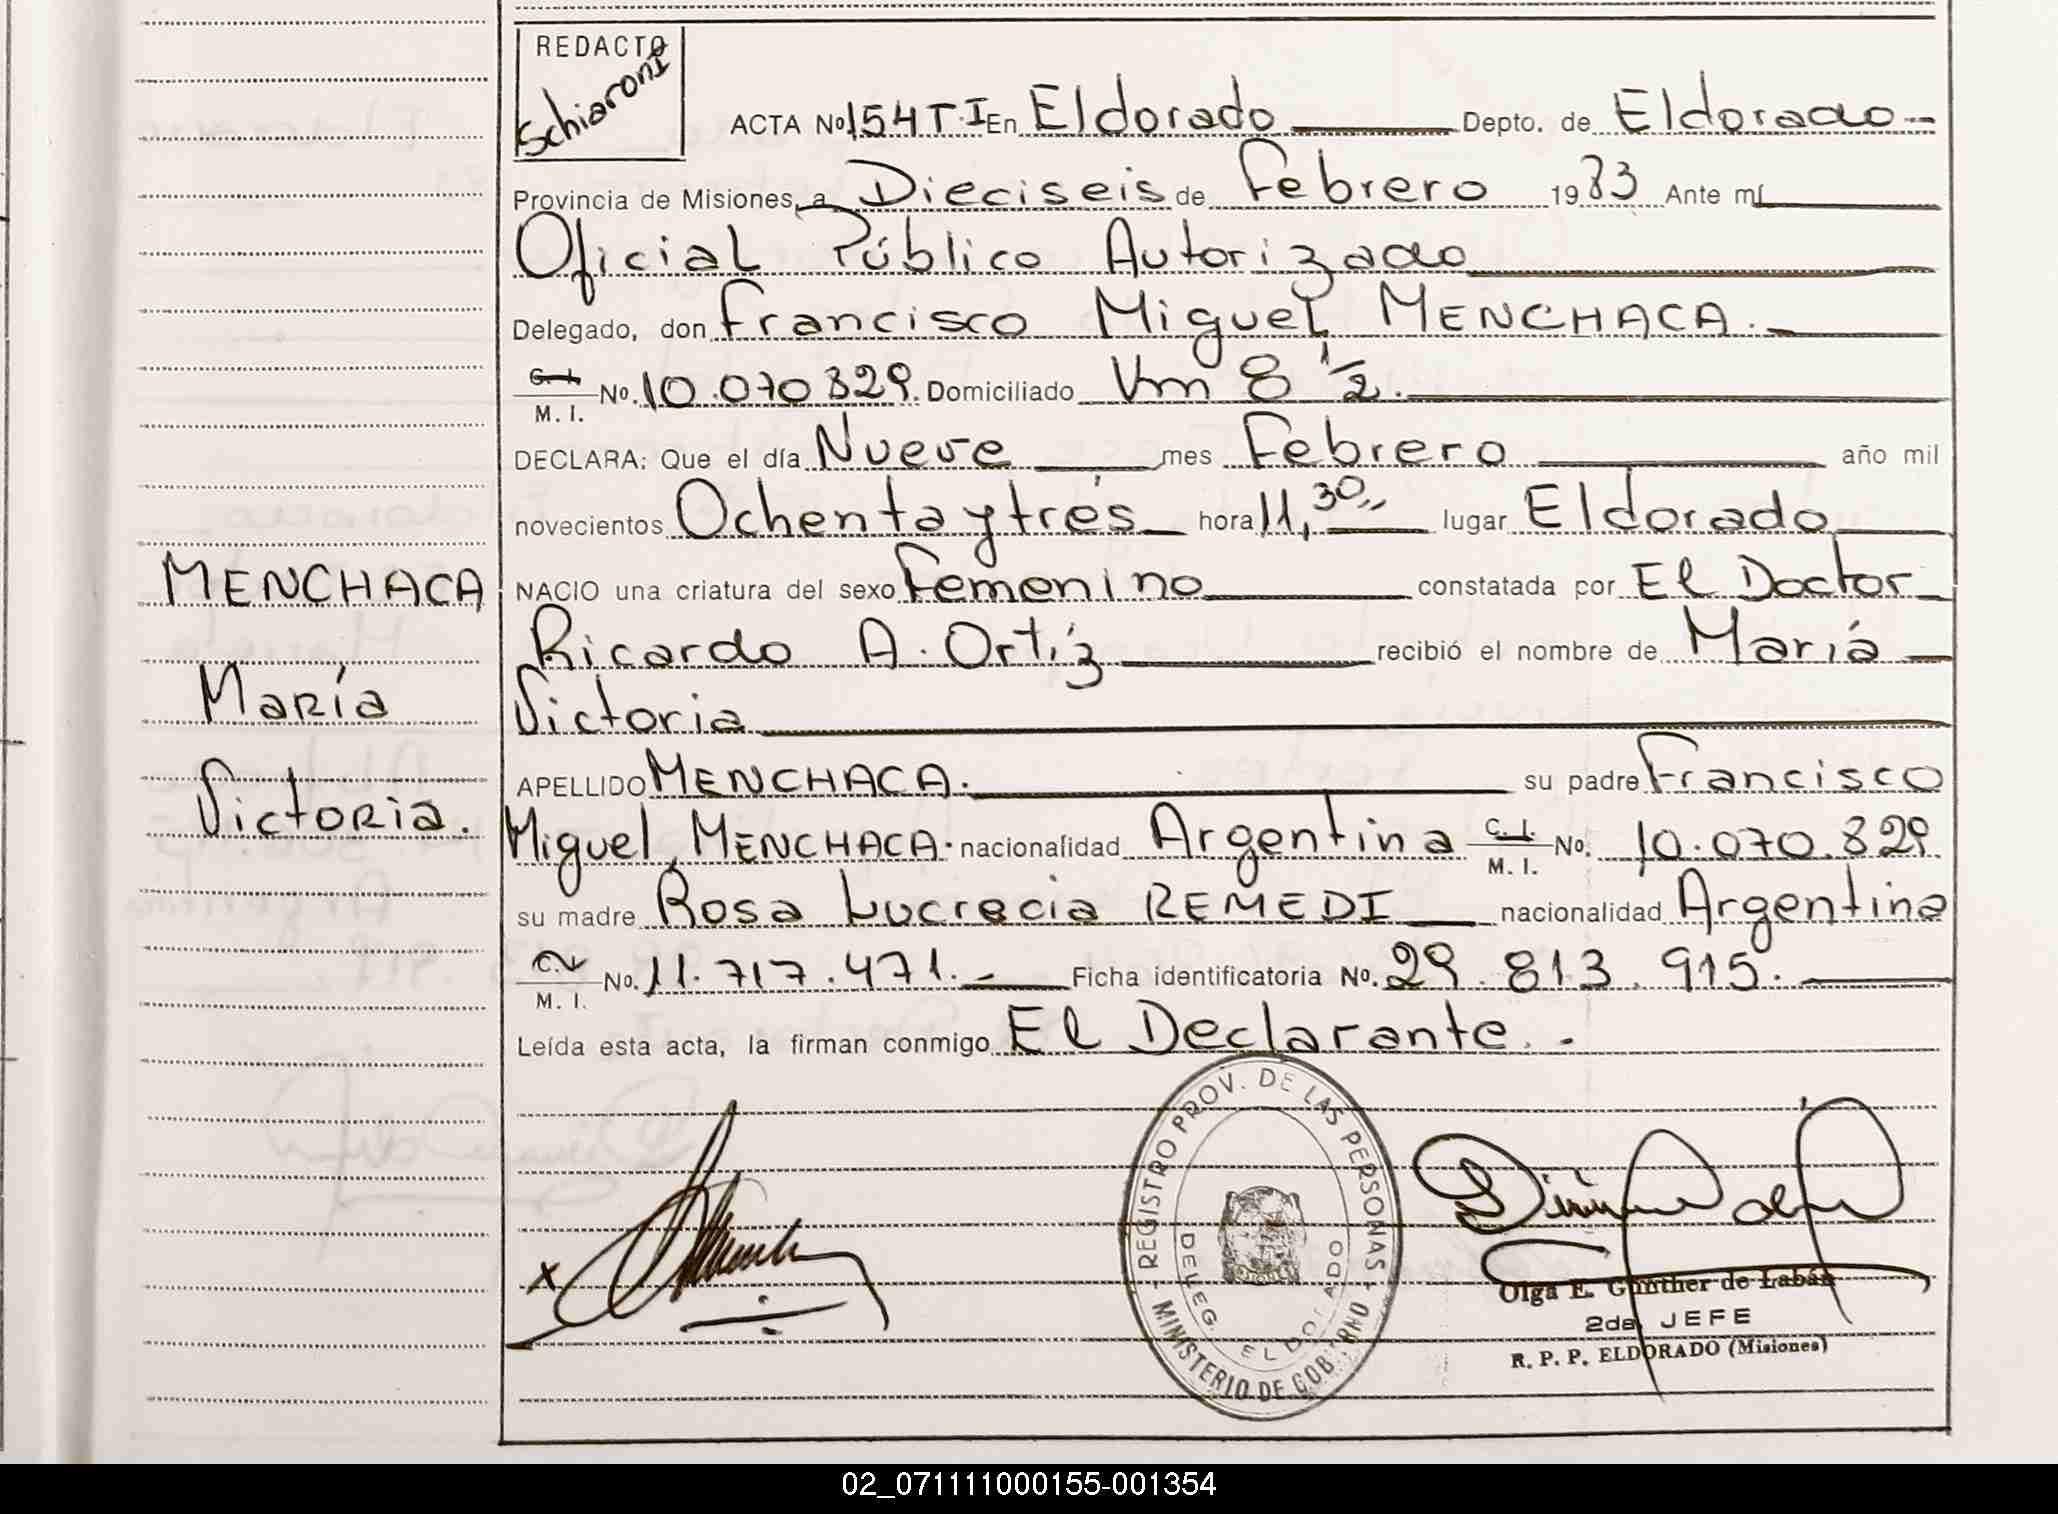 REDACTO
Schiaroni
ACTA Nº 154 T·I En Eldorado Depto. de Eldorado
Provincia de Misiones, a Dieciseis de Febrero 1983 Ante mí
Oficial Público Autorizado
Delegado, don Francisco Miguel MENCHACA.
C. I.
M. I. No. 10.070.829. Domiciliado Km 8 1/2.
DECLARA: Que el día Nueve mes Febrero año mil
novecientos Ochenta y trés hora 11,30 lugar Eldorado
NACIO una criatura del sexo Femenino constatada por El Doctor
Ricardo A. Ortíz recibió el nombre de María
Victoria
APELLIDO MENCHACA. su padre Francisco
Miguel MENCHACA. nacionalidad Argentina C. I.
M. I. No. 10.070.829
su madre Rosa Lucrecia REMEDI nacionalidad Argentina
C. I.
M. I. No. 11.717.471.- Ficha identificatoria No. 29.813.915.
Leída esta acta, la firman conmigo El Declarante.-
MENCHACA
María
Victoria.
x
REGISTRO PROV. DE LAS PERSONAS
MINISTERIO DE GOBIERNO
DELEG. ELDORADO
Olga E. Günther de Labán
2da. JEFE
R. P. P. ELDORADO (Misiones)
02_071111000155-001354